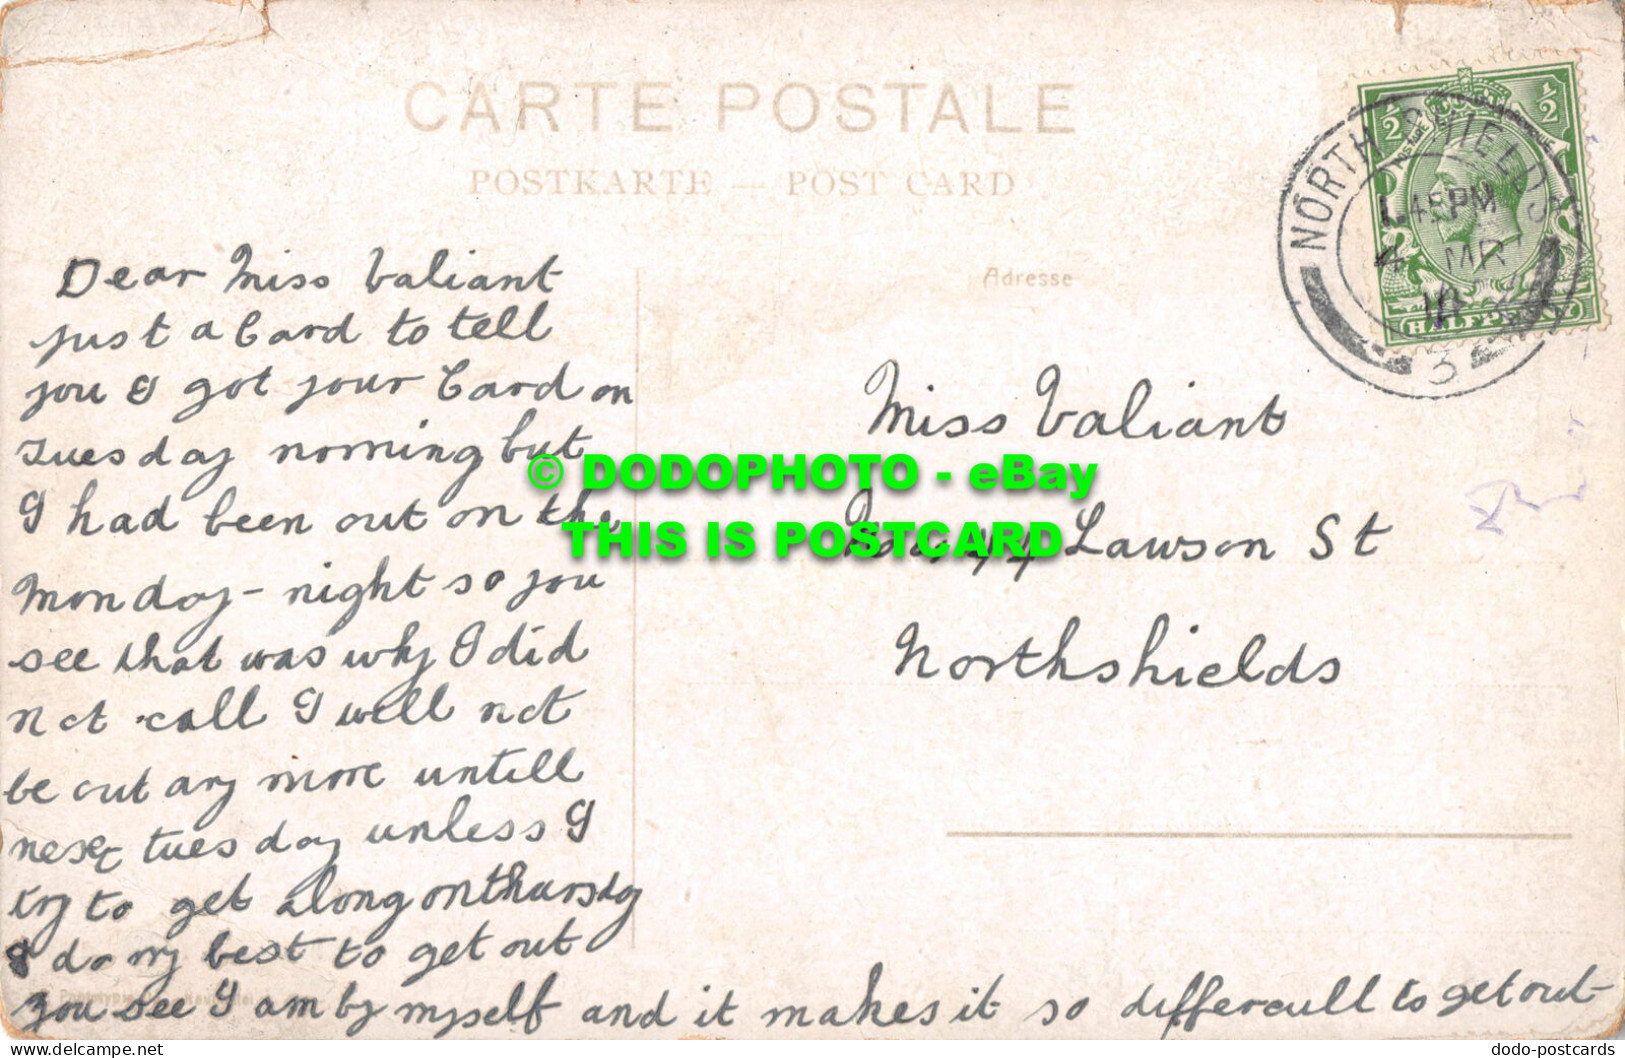 CARTE POSTALE
POSTKARTE — POST CARD
Adresse
½ ½
NORTH SHIELDS
.45PM
MR
3
HALFPENNY
Dear Miss Valiant
just a Card to tell
you I got your Card on
Tuesday norning but
I had been out on the
Monday - night so you
see that was why I did
not call I will not
be out any more untill
next tuesday unless I
try to get along on thursday
I do my best to get out
you see I am by myself and it makes it so differcull to get out-
Miss Valiant
44 Lawson St
Northshields
© DODOPHOTO - eBay
THIS IS POSTCARD
dodo-postcards